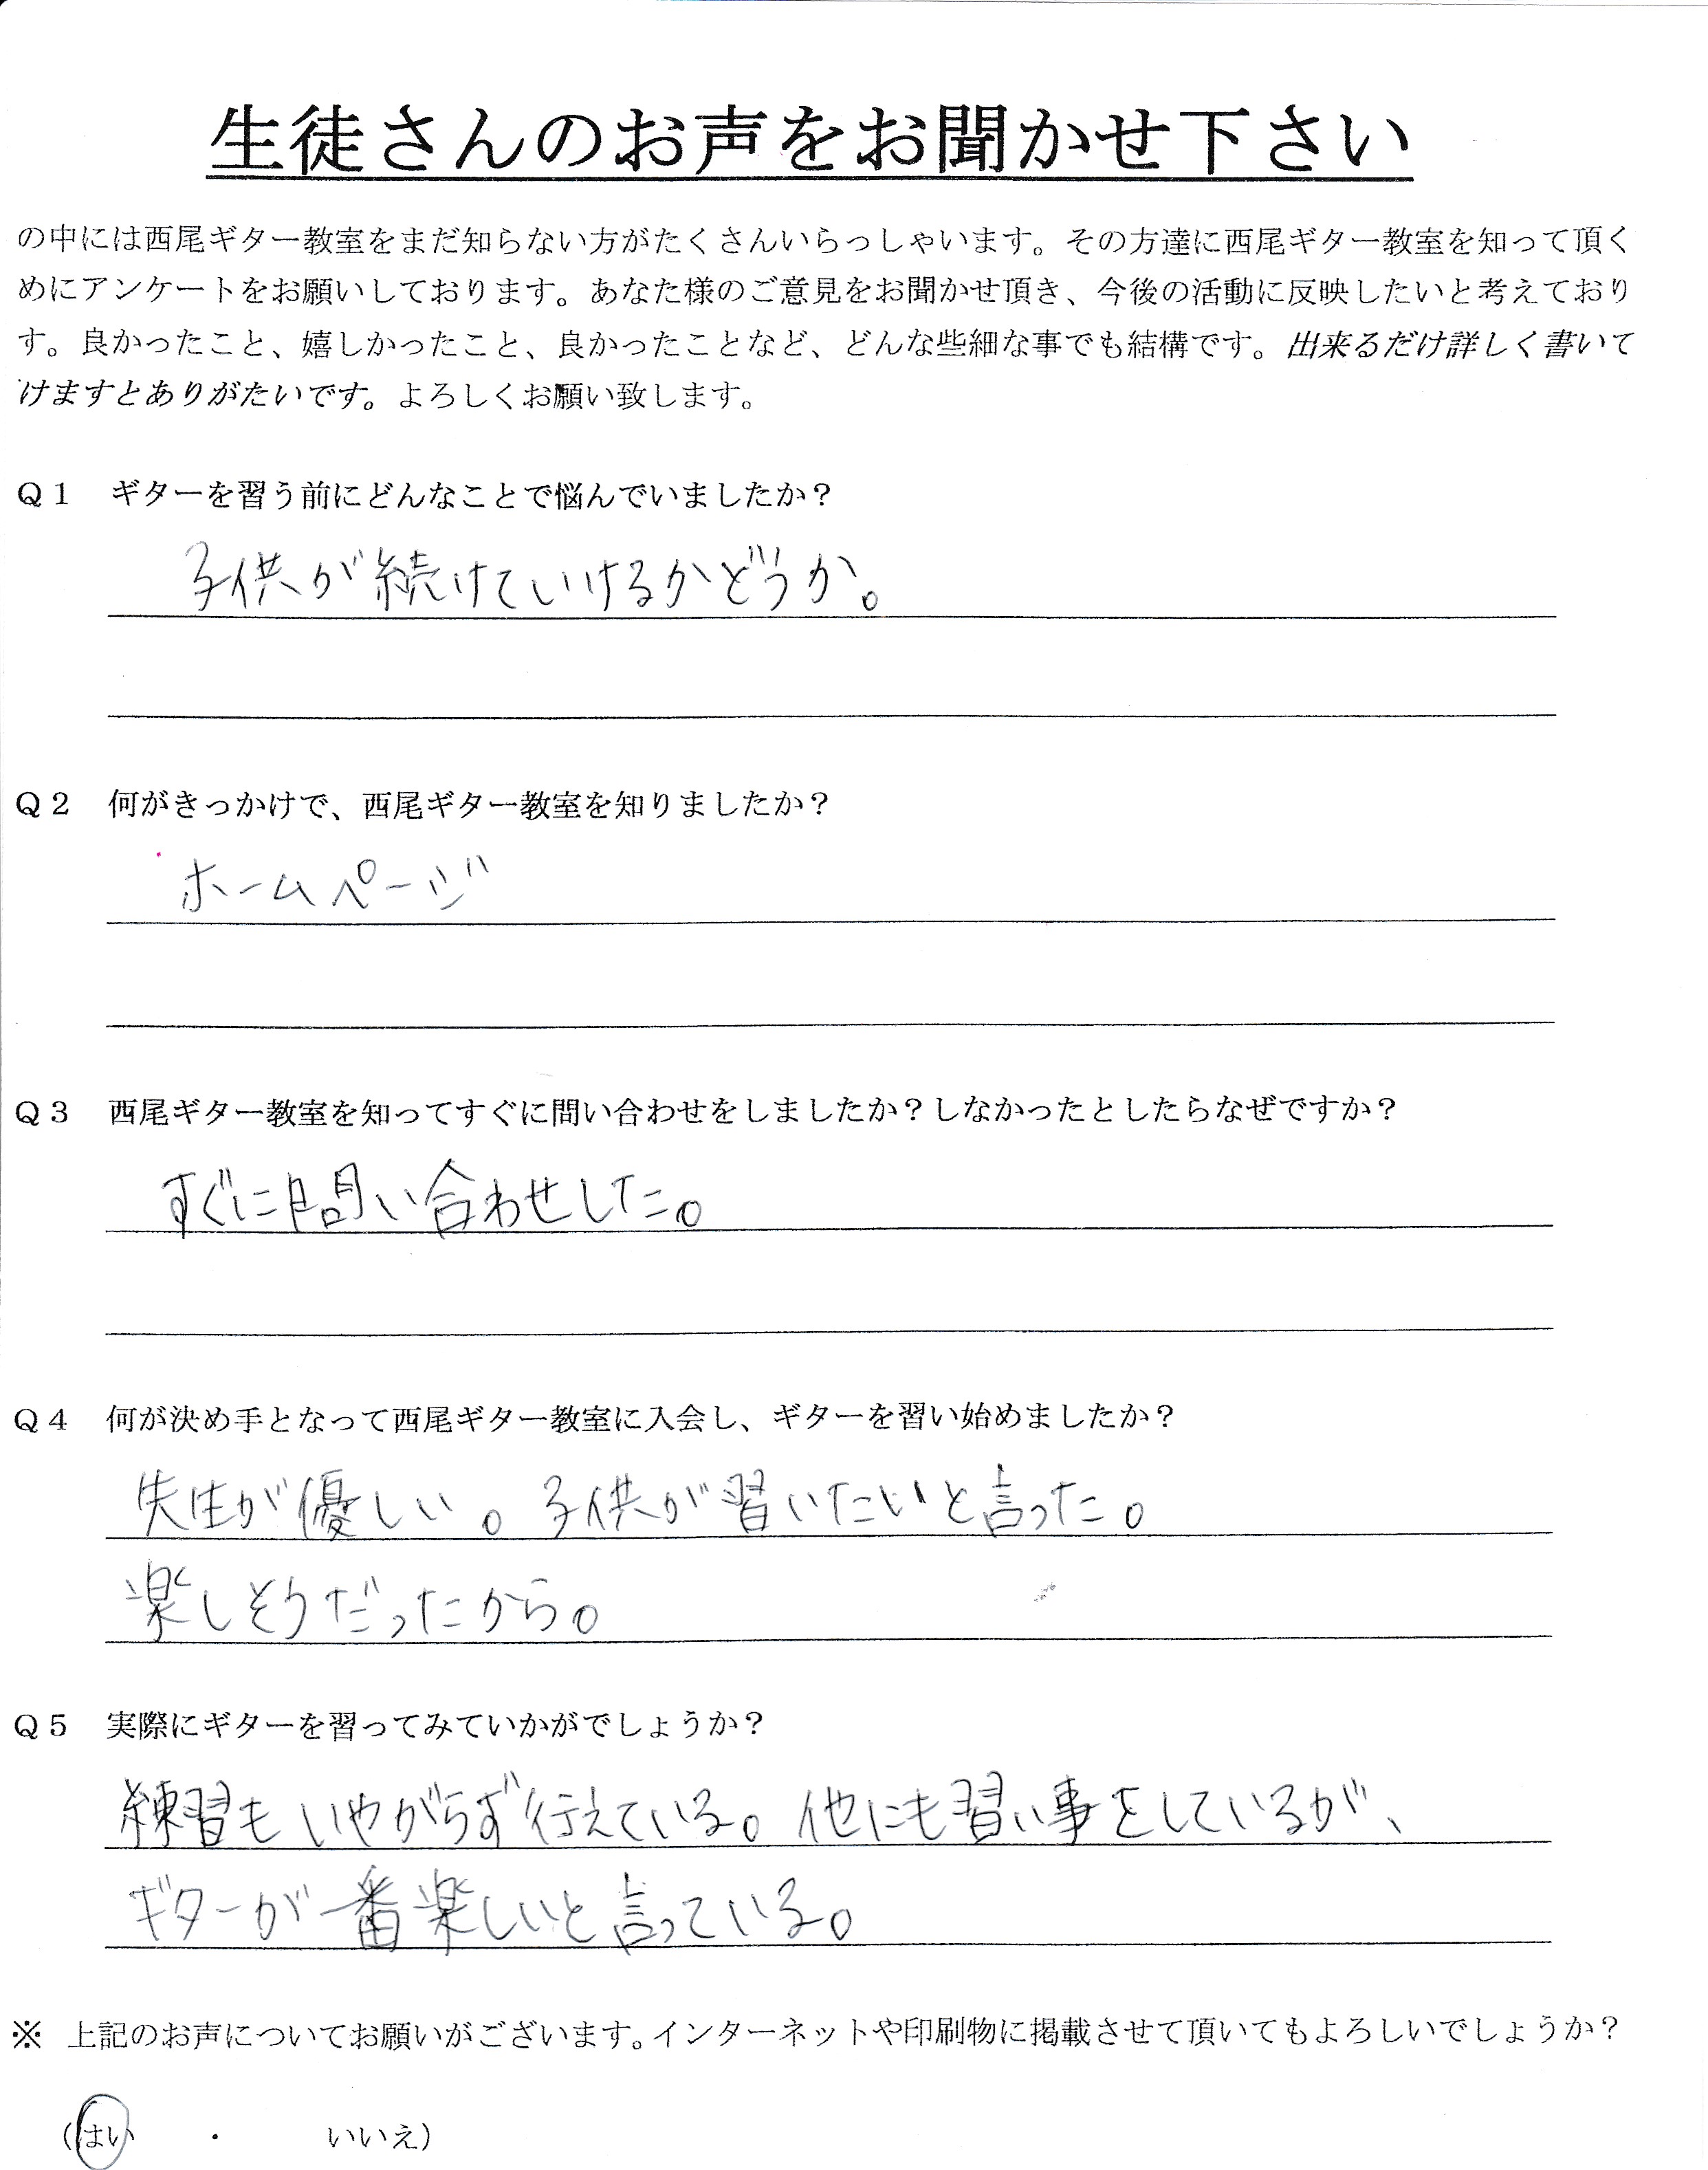 生徒さんのお声をお聞かせ下さい
の中には西尾ギター教室をまだ知らない方がたくさんいらっしゃいます。その方達に西尾ギター教室を知って頂く
めにアンケートをお願いしております。あなた様のご意見をお聞かせ頂き、今後の活動に反映したいと考えており
す。良かったこと、嬉しかったこと、良かったことなど、どんな些細な事でも結構です。出来るだけ詳しく書いて
けますとありがたいです。よろしくお願い致します。
Q1 ギターを習う前にどんなことで悩んでいましたか？
子供が続けていけるかどうか。
Q2 何がきっかけで、西尾ギター教室を知りましたか？
ホームページ
Q3 西尾ギター教室を知ってすぐに問い合わせをしましたか？しなかったとしたらなぜですか？
すぐに問い合わせした。
Q4 何が決め手となって西尾ギター教室に入会し、ギターを習い始めましたか？
先生が優しい。子供が習いたいと言った。
楽しそうだったから。
Q5 実際にギターを習ってみていかがでしょうか？
練習もいやがらず行えている。他にも習い事をしているが、
ギターが一番楽しいと言っている。
※ 上記のお声についてお願いがございます。インターネットや印刷物に掲載させて頂いてもよろしいでしょうか？
（はい ・ いいえ）